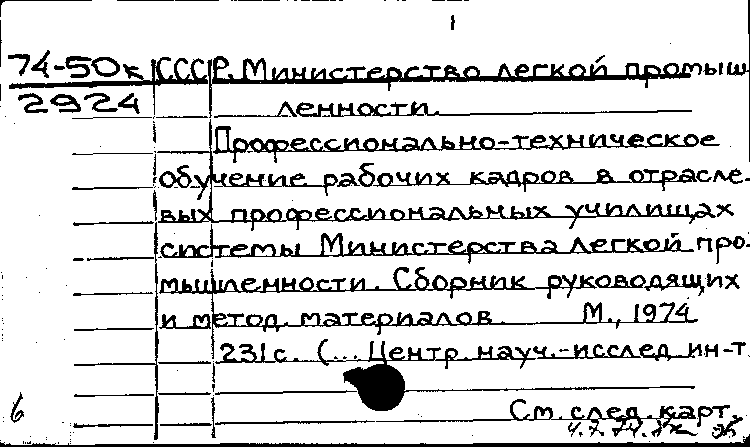 1
74-50к СССР. Министерство легкой промыш-
2924 ленности.
Профессионально-техническое
обучение рабочих кадров в отрасле-
вых профессиональных училищах
системы Министерства легкой про-
мышленности. Сборник руководящих
и метод. материалов. М., 1974
231 с. (... Центр. науч.-исслед. ин-т
См. след. карт.
6